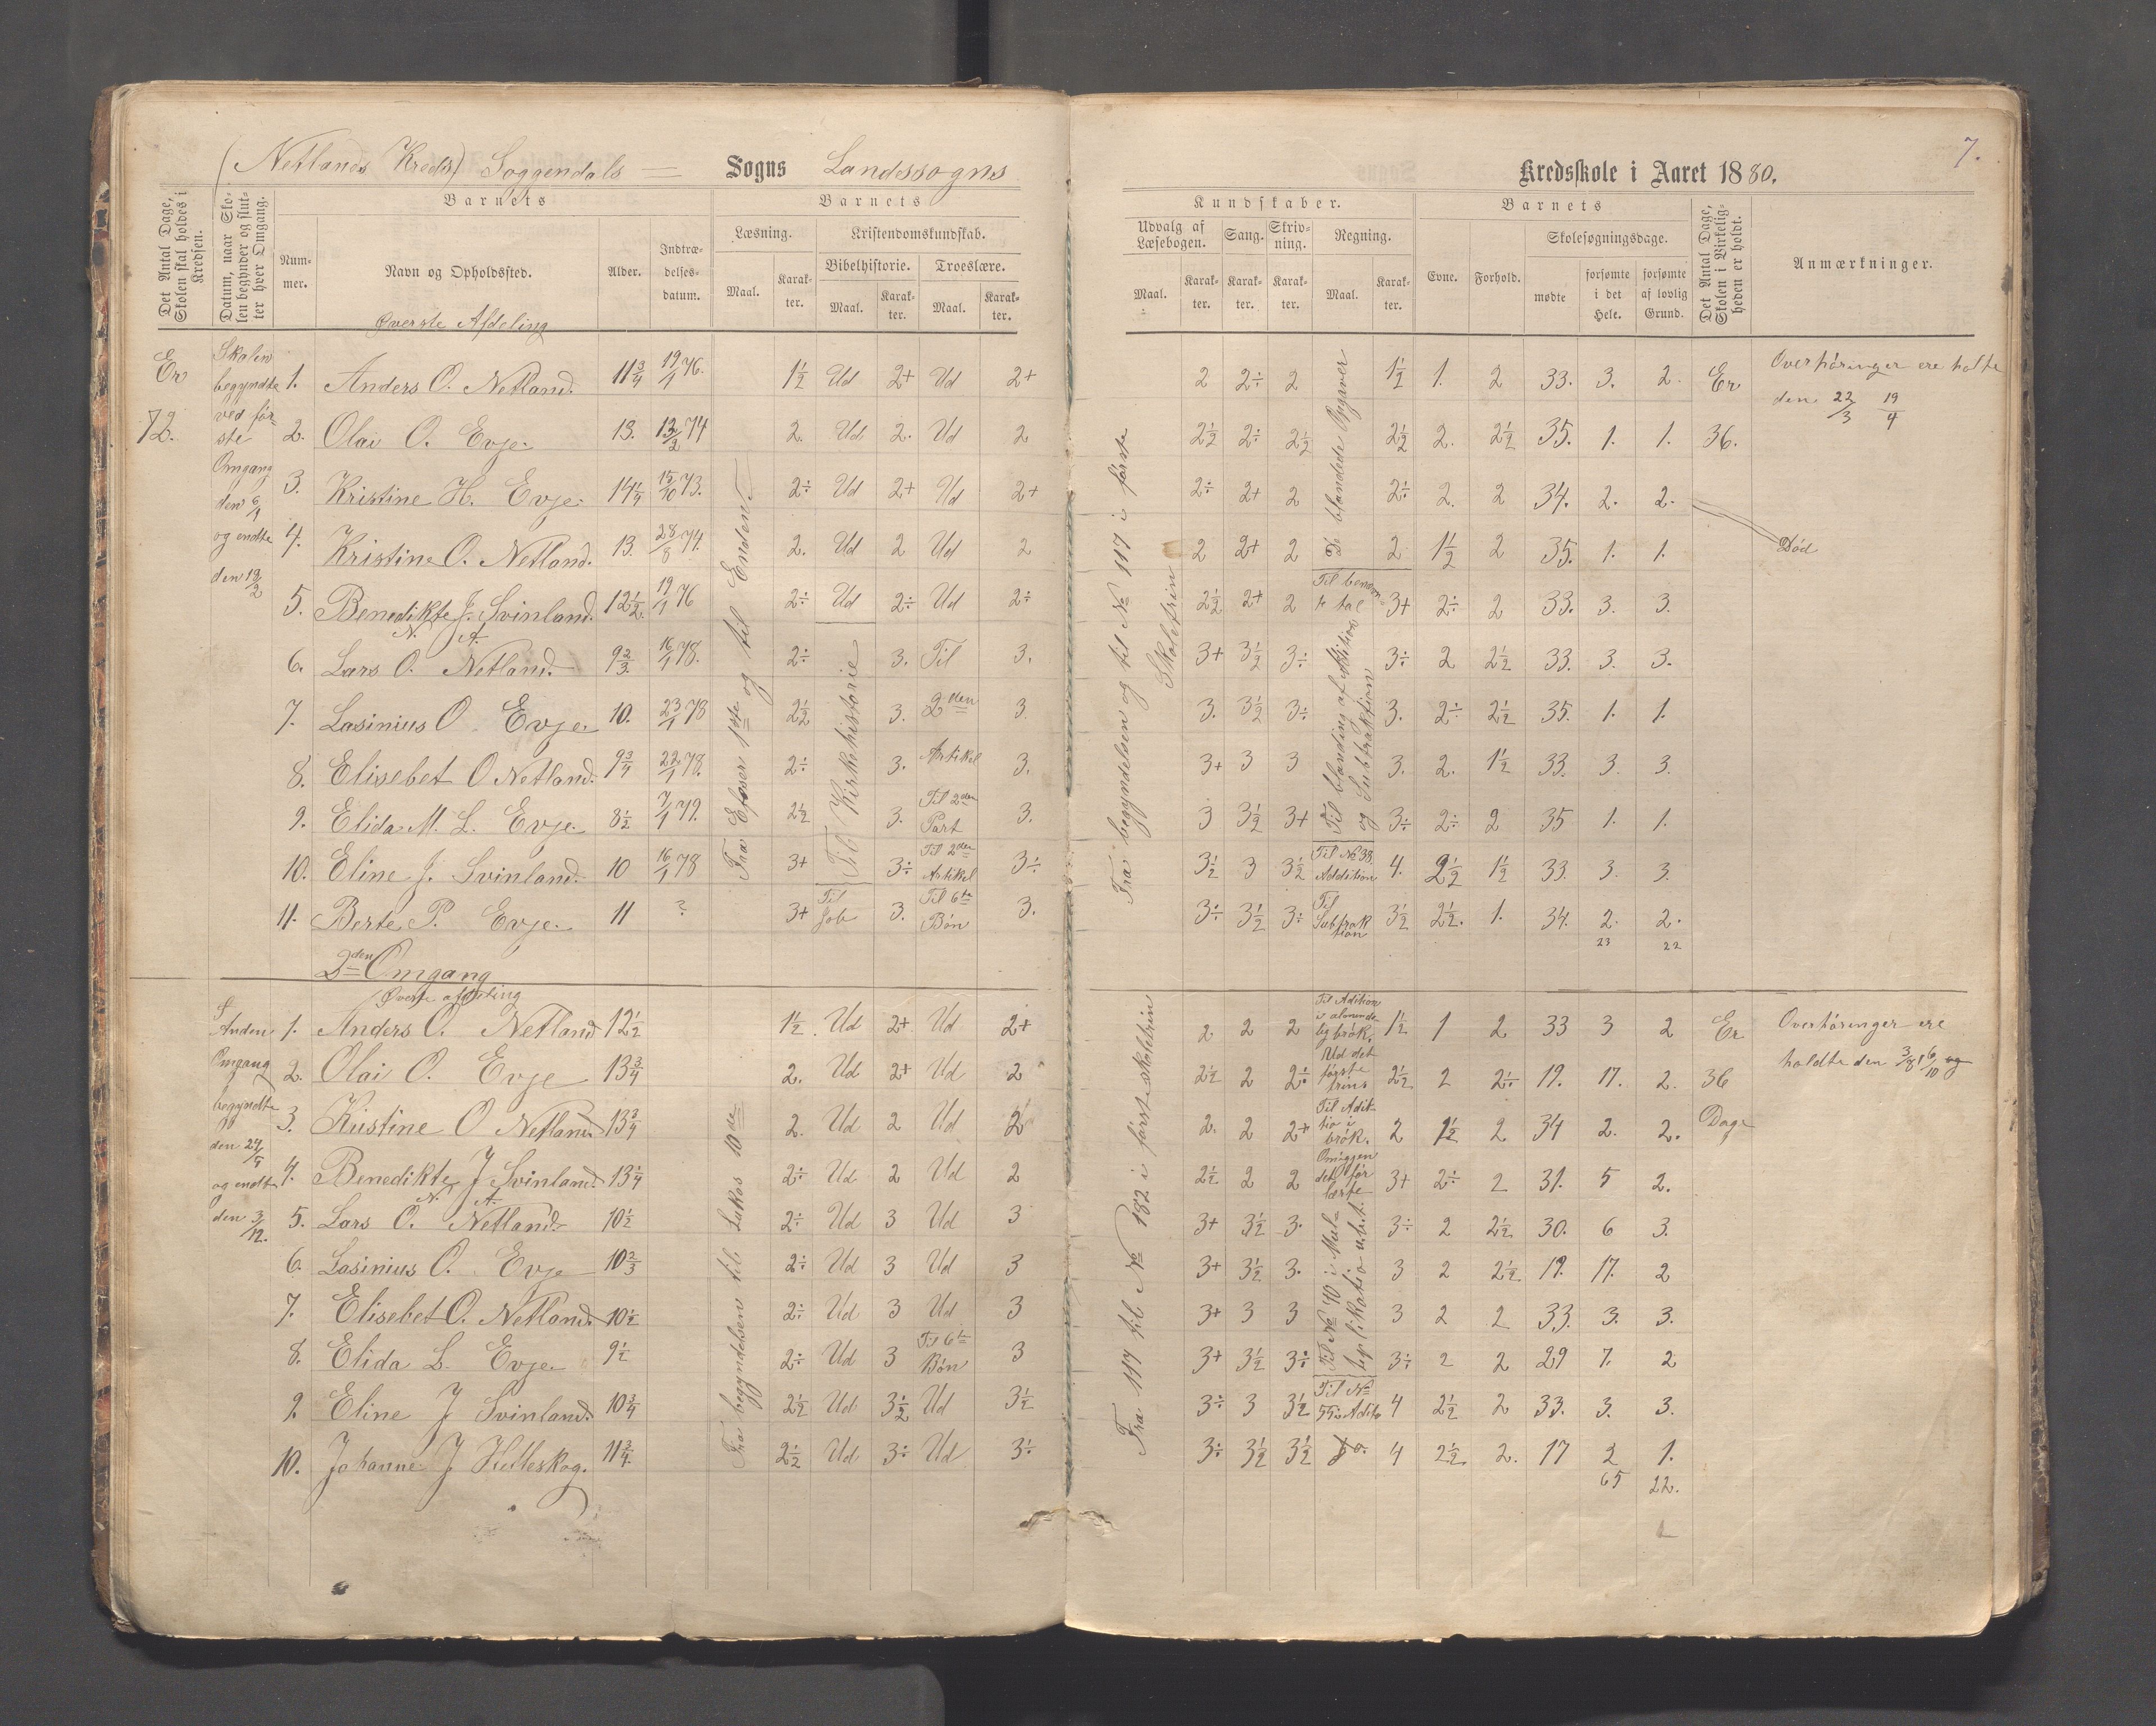 (Netlands Kreds) Soggendals = Sogns Landssogns Kredsskole i Aaret 1880. 7.
Det Antal Dage, Skolen skal holdes i Kredsen.
Datum, naar Skolen begynder og slutter hver Omgang.
Barnets
Nummer. Navn og Opholdssted. Alder. Indtrædelsesdatum.
Barnets
Læsning. Maal. Karakter.
Kristendomskundskab.
Bibelhistorie. Maal. Karakter. Troeslære. Maal. Karakter.
Kundskaber.
Udvalg af Læsebogen. Maal. Karakter. Sang. Karakter. Skrivning. Karakter. Regning. Maal. Karakter.
Barnets
Evne. Forhold. Skolesøgningsdage. mødte forsømte i det Hele. forsømte af lovlig Grund.
Det Antal Dage, Skolen i Virkeligheden er holdt.
Anmærkninger.
Øverste Afdeling
Er 72.
Skolen begyndte ved første Omgang den 6/1 og endte den 19/2
Fra Efeser 1ste og til Enden
Til Kirkehistorie
Fra begyndelsen og til No 117 i første Skoletrin
De blandede Opgaver
Til blanding af Adition og Subtraktion
1. Anders O. Netland. 11 3/4 19/1 76. 1 1/2 Ud 2+ Ud 2+ 2 2÷ 2 1 1/2 1. 2 33. 3. 2. Er Overhøringer ere holte
den 22/3 19/4
2. Olai O. Evje. 13. 13/2 74 2. Ud 2. Ud 2 2 1/2 2÷ 2 1/2 2 1/2 2. 2 1/2 35. 1. 1. 36.
3. Kristine H. Evje. 14 1/4 15/10 73. 2÷ Ud 2+ Ud 2+ 2÷ 2+ 2 2÷ 2. 2 34. 2. 2.
4. Kristine O. Netland. 13. 28/8 74. 2. Ud 2 Ud 2 2 2+ 2 2 1 1/2 2 35. 1. 1. Død
5. Benedikte J. Svinland. 12 1/2. 19/1 76 2÷ Ud 2÷ Ud 2÷ 2 1/2 2+ 2 Til benævnte tal 3+ 2÷ 2 33. 3. 3.
N. A.
6. Lars O. Netland. 9 2/3. 16/1 78. 2÷ 3. Til 3. 3+ 3 1/2 3÷ 3÷ 2 2 1/2 33. 3. 3.
7. Lasinius O. Evje. 10. 23/1 78 2 1/2 3. 2den 3. 3. 3 1/2 3÷ 3. 2÷ 2 1/2 35. 1. 1.
8. Elisebet O Netland. 9 3/4 22/1 78. 2÷ 3. Artikel 3. 3+ 3 3 3. 2. 1 1/2 33. 3. 3.
9. Elida M. L. Evje. 8 1/2 7/1 79. 2 1/2 3. Til 2den Part 3. 3 3 1/2 3+ 3÷ 2÷ 2 35 1. 1.
10. Eline J. Svinland. 10 16/1 78 3+ 3÷ Til 2den Artikel 3÷ 3 1/2 3 3 1/2 Til No 38. Addition 4. 2 1/2 1 1/2 33. 3. 3.
11. Berte P. Evje. 11 ? 3+ Til Job 3. Til 6te Bøn 3. 3÷ 3 1/2 3÷ Til Subtraktion 3 1/2 2 1/2. 1. 34. 2. 2.
23 22
2den Omgang
Øverste afdeling
Anden Omgang begyndte den 24/4 og endte den 3/12.
Fra begyndelsen til Lukas 10de
Fra 117 til No 182 i første skoletrin
Til No 40 i Multiplikatio u.b.t.
1. Anders O. Netland 12 1/2 1 1/2 Ud 2+ Ud 2+ 2. 2 2 Til Adition i almindelig brøk. 1 1/2 1 2 33 3 2 Er Overhøringer ere
holdte den 3/8, 6/10 og
2. Olai O. Evje 13 3/4 2. Ud 2+ Ud 2 2 1/2 2 2÷ Ud det første trins 2 1/2 2 2÷ 19. 17. 2. 36
3. Kristine O Netland. 13 3/4 2. Ud 2 Ud 2 2. 2 2+ Til Adittio i brøk. 2 1 1/2 2 34 2. 2. Dage
4. Benedikte J Svinland. 13 1/4 2÷ Ud 2 Ud 2 2 1/2 2 2 3+ 2÷ 2 31. 5 2.
N. A.
5. Lars O. Netland. 10 1/2 2÷ Ud 3 Ud 3 3+ 3 1/2 3. 3÷ 2 2 1/2 30. 6 3.
6. Lasinius O. Evje 10 2/3 2÷ Ud 3 Ud 3 3+ 3 1/2 3. 3 2 2 1/2. 19. 17. 2
7. Elisebet O. Netland. 10 1/2 2÷ Ud 3 Ud 3 3+ 3 3 3 2 2 33. 3. 3.
8. Elida L. Evje. 9 1/2 2÷ Ud 3 Til 6te Bøn 3 3+ 3 1/2 3÷ 3÷ 2 2 29 7. 2
9. Eline J Svinland. 10 3/4 2 1/2 Ud 3 1/2 Ud 3 1/2 3÷ 3 3 1/2 Til No 55 i Aditi 4 2 1/2 2 33. 3. 3.
10. Johanne J Hulleskog. 11 3/4. 2 1/2 Ud 3÷ Ud 3÷ 3÷ 3 1/2 3 1/2 do. 4 2 1/2. 2. 17 2 1.
65 22.